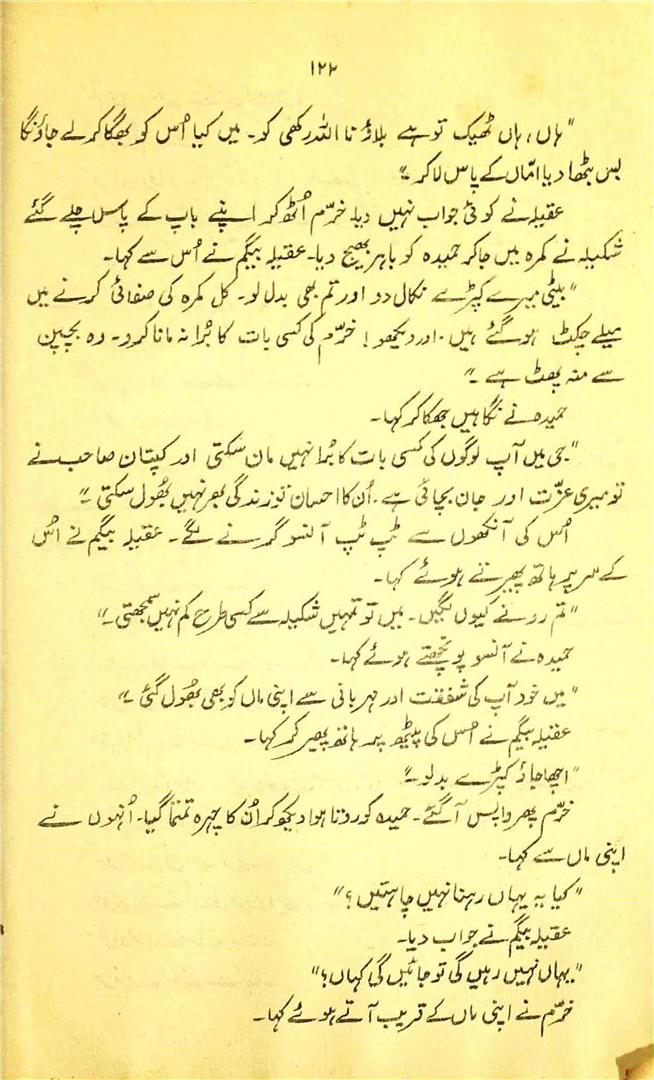 ۱۲۲
"ہاں، ہاں ٹھیک تو ہے بلاؤ نا اللہ رکھی کو۔ میں کیا اُس کو بھگا کر لے جاؤنگا
بس بٹھا دیا امّاں کے پاس لا کر۔"
عقیلہ نے کوئی جواب نہیں دیا۔ خرّم اُٹھ کر اپنے باپ کے پاس چلے گئے
شکیلہ نے کمرہ میں جا کر حمیدہ کو باہر بھیج دیا۔ عقیلہ بیگم نے اُس سے کہا۔
"بیٹی میرے کپڑے نکال دو اور تم بھی بدل لو۔ کل کمرہ کی صفائی کرنے میں
میلے چکٹ ہو گئے ہیں۔ اور دیکھو! خرّم کی کسی بات کا بُرا نہ مانا کرو۔ وہ بچپن
سے منہ پھٹ ہے۔"
حمیدہ نے نگاہیں جھکا کر کہا۔
"جی میں آپ لوگوں کی کسی بات کا بُرا نہیں مان سکتی اور کپتان صاحب نے
تو میری عزّت اور جان بچائی ہے۔ اُن کا احسان تو زندگی بھر نہیں بھُول سکتی۔"
اُس کی آنکھوں سے ٹپ ٹپ آنسو گرنے لگے۔ عقیلہ بیگم نے اُس
کے سر پر ہاتھ پھیرتے ہوئے کہا۔
"تم رونے کیوں لگیں۔ میں تو تمہیں شکیلہ سے کسی طرح کم نہیں سمجھتی۔"
حمیدہ نے آنسو پونچھتے ہوئے کہا۔
"میں خود آپ کی شفقت اور مہربانی سے اپنی ماں کو بھی بھُول گئی۔"
عقیلہ بیگم نے اُس کی پیٹھ پر ہاتھ پھیر کر کہا۔
"اچھا جاؤ کپڑے بدلو۔"
خرّم پھر واپس آ گئے۔ حمیدہ کو روتا ہوا دیکھ کر اُن کا چہرہ تمتما گیا۔ اُنہوں نے
اپنی ماں سے کہا۔
"کیا یہ یہاں رہنا نہیں چاہتیں؟"
عقیلہ بیگم نے جواب دیا۔
"یہاں نہیں رہیں گی تو جائیں گی کہاں؟"
خرّم نے اپنی ماں کے قریب آتے ہوئے کہا۔